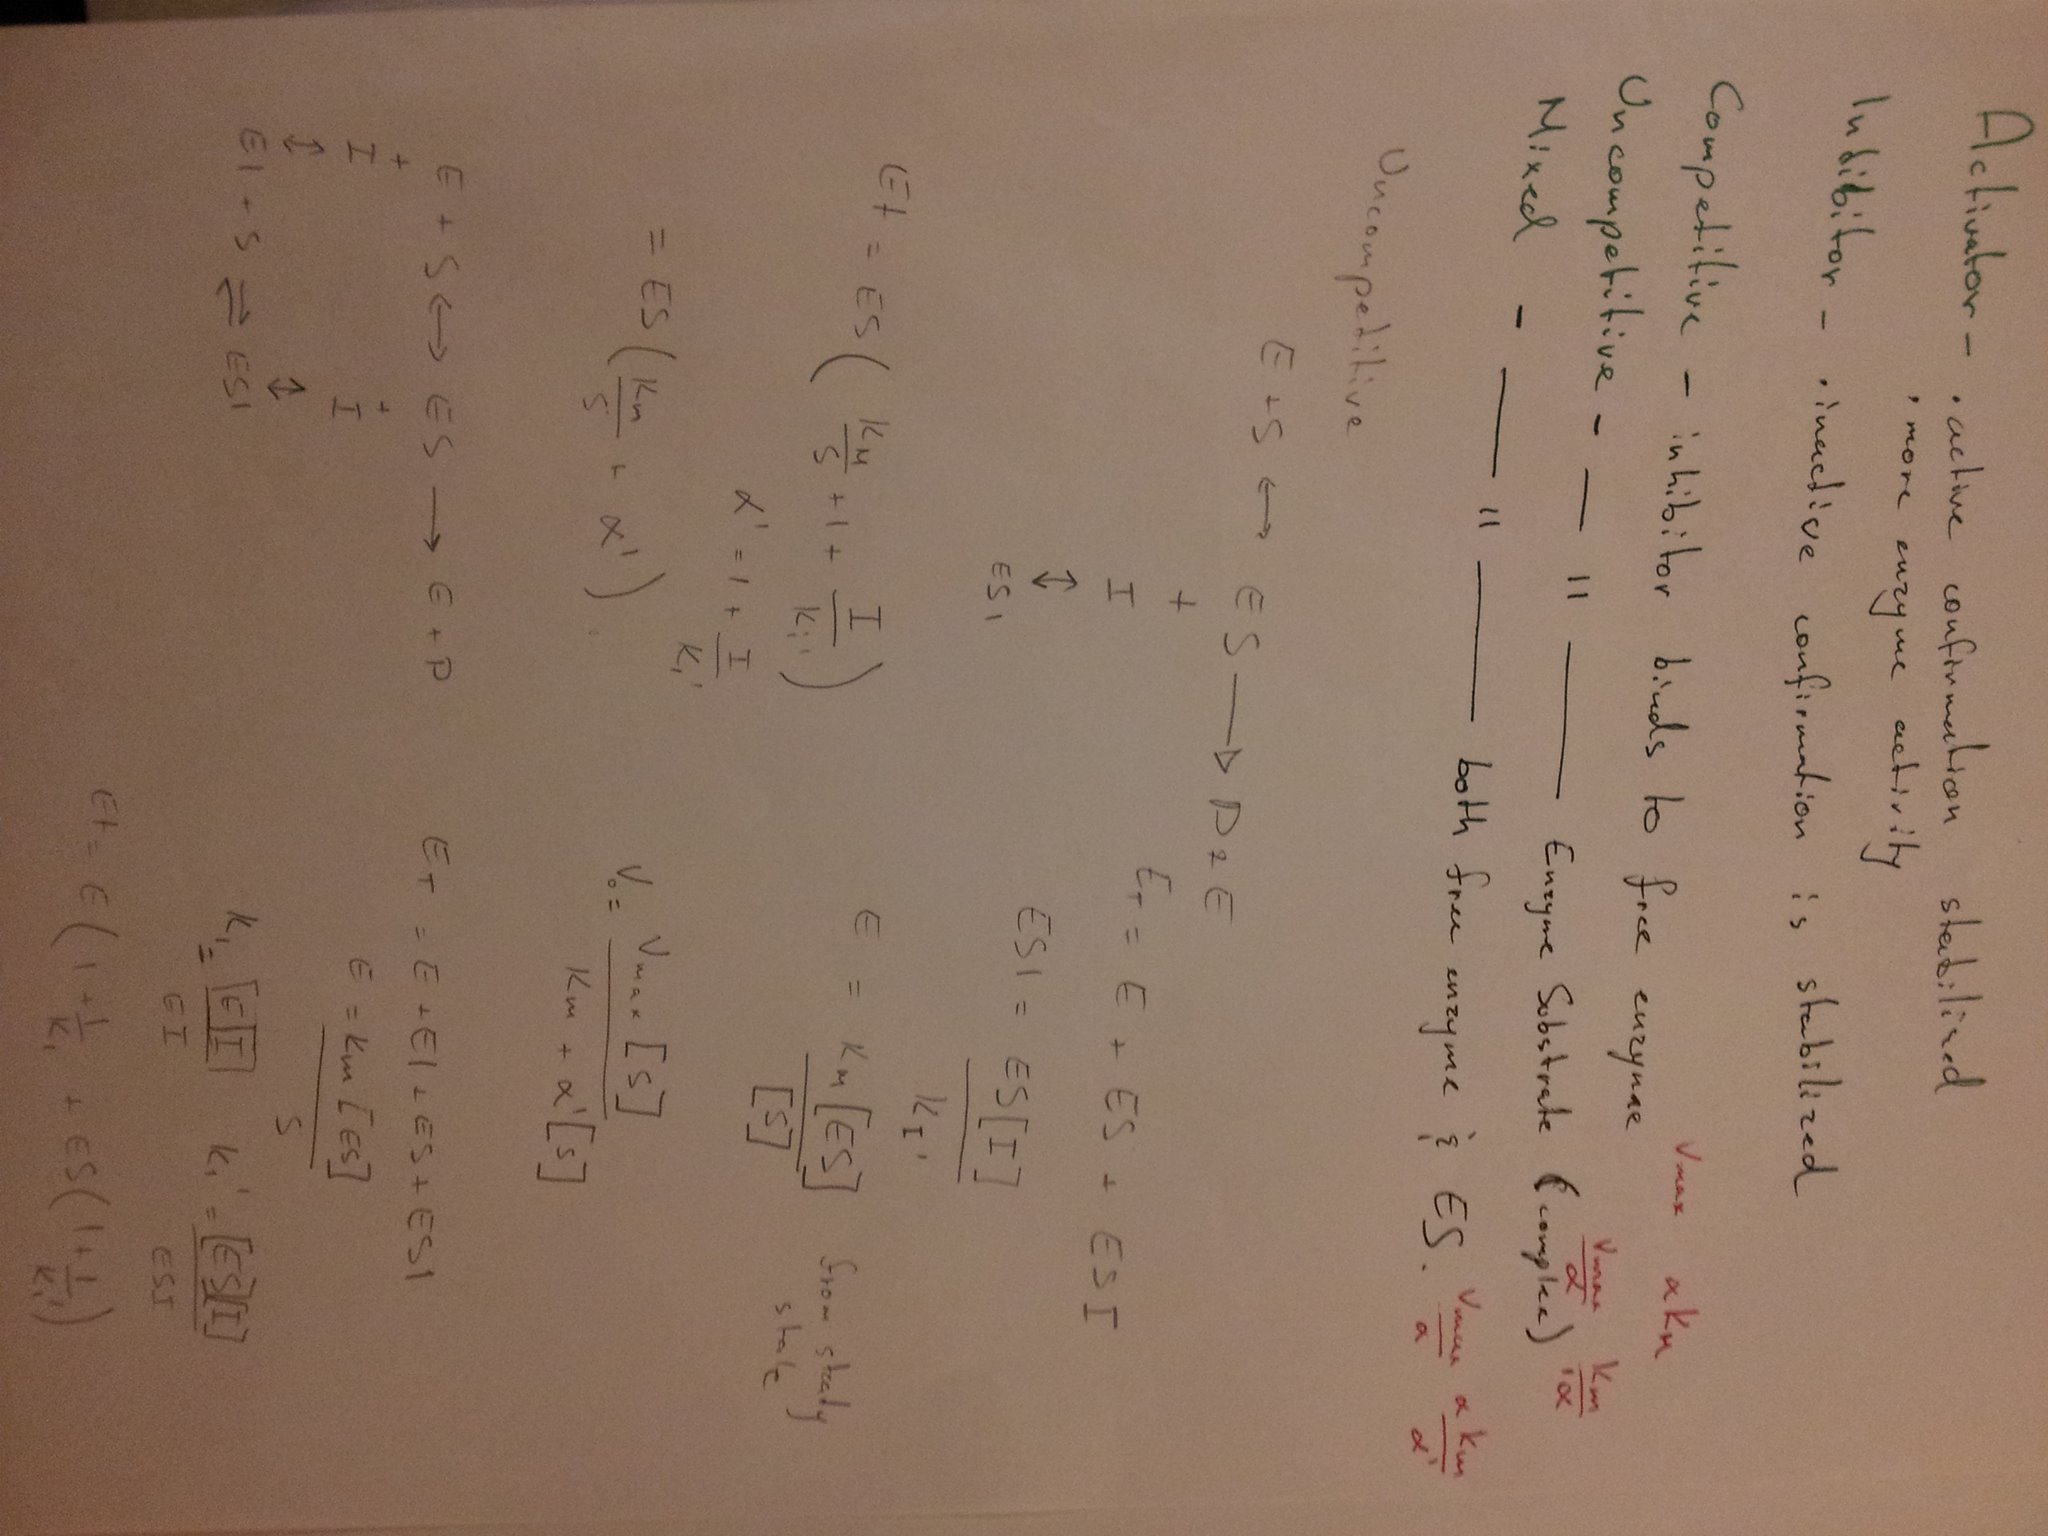 Activator - · active confirmation stabilized
· more enzyme activity
Inbibitor - · inactive confirmation is stabilized
Competitive - inhibitor binds to free enzyme Vmax αKm
Uncompetitive - — " — Enzyme Substrate (complex) Vmax/α Km/'α
Mixed - — " — both free enzyme & ES. Vmax/α αKm/α'
Uncompetitive
E + S ↔ ES → P + E
+
I
↕
ESI
ET = E + ES + ESI
ESI = ES[I] / KI'
Et = ES ( Km/S + 1 + I/Ki' )
E = KM[ES] / [S] from steady state
α' = 1 + I/Ki'
= ES ( Km/S + α' )
V0 = Vmax[S] / Km + α'[S]
E + S ↔ ES → E + P
+ +
I I
↕ ↕
EI + S ⇌ ESI
ET = E + EI + ES + ESI
E = Km[ES] / S
KI = [E][I] / EI KI' = [ES][I] / ESI
Et = E ( 1 + I/KI + ES ( 1 + I/KI' )